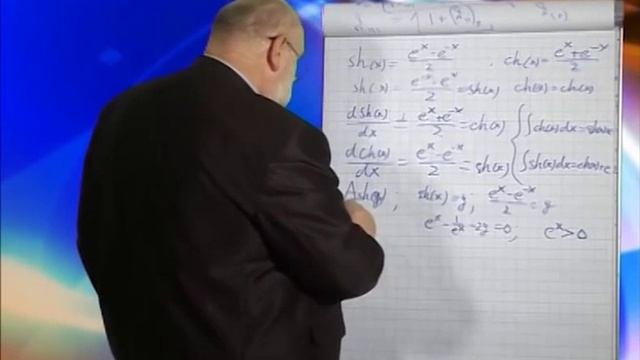 sh(x) = (e^x - e^-x)/2 , ch(x) = (e^x + e^-x)/2
sh(x) = (e^-x - e^x)/2 = sh(x) ch(x) = ch(x)
dsh(x)/dx = (e^x + e^-x)/2 = ch(x) { ∫ch(x)dx = sh(x)
dch(x)/dx = (e^x - e^-x)/2 = sh(x) ∫sh(x)dx = ch(x)+c
Ash(y) ; sh(x) = y ; (e^x - e^-x)/2 = y
e^x - 1/e^x - 2y = 0 ; e^x > 0